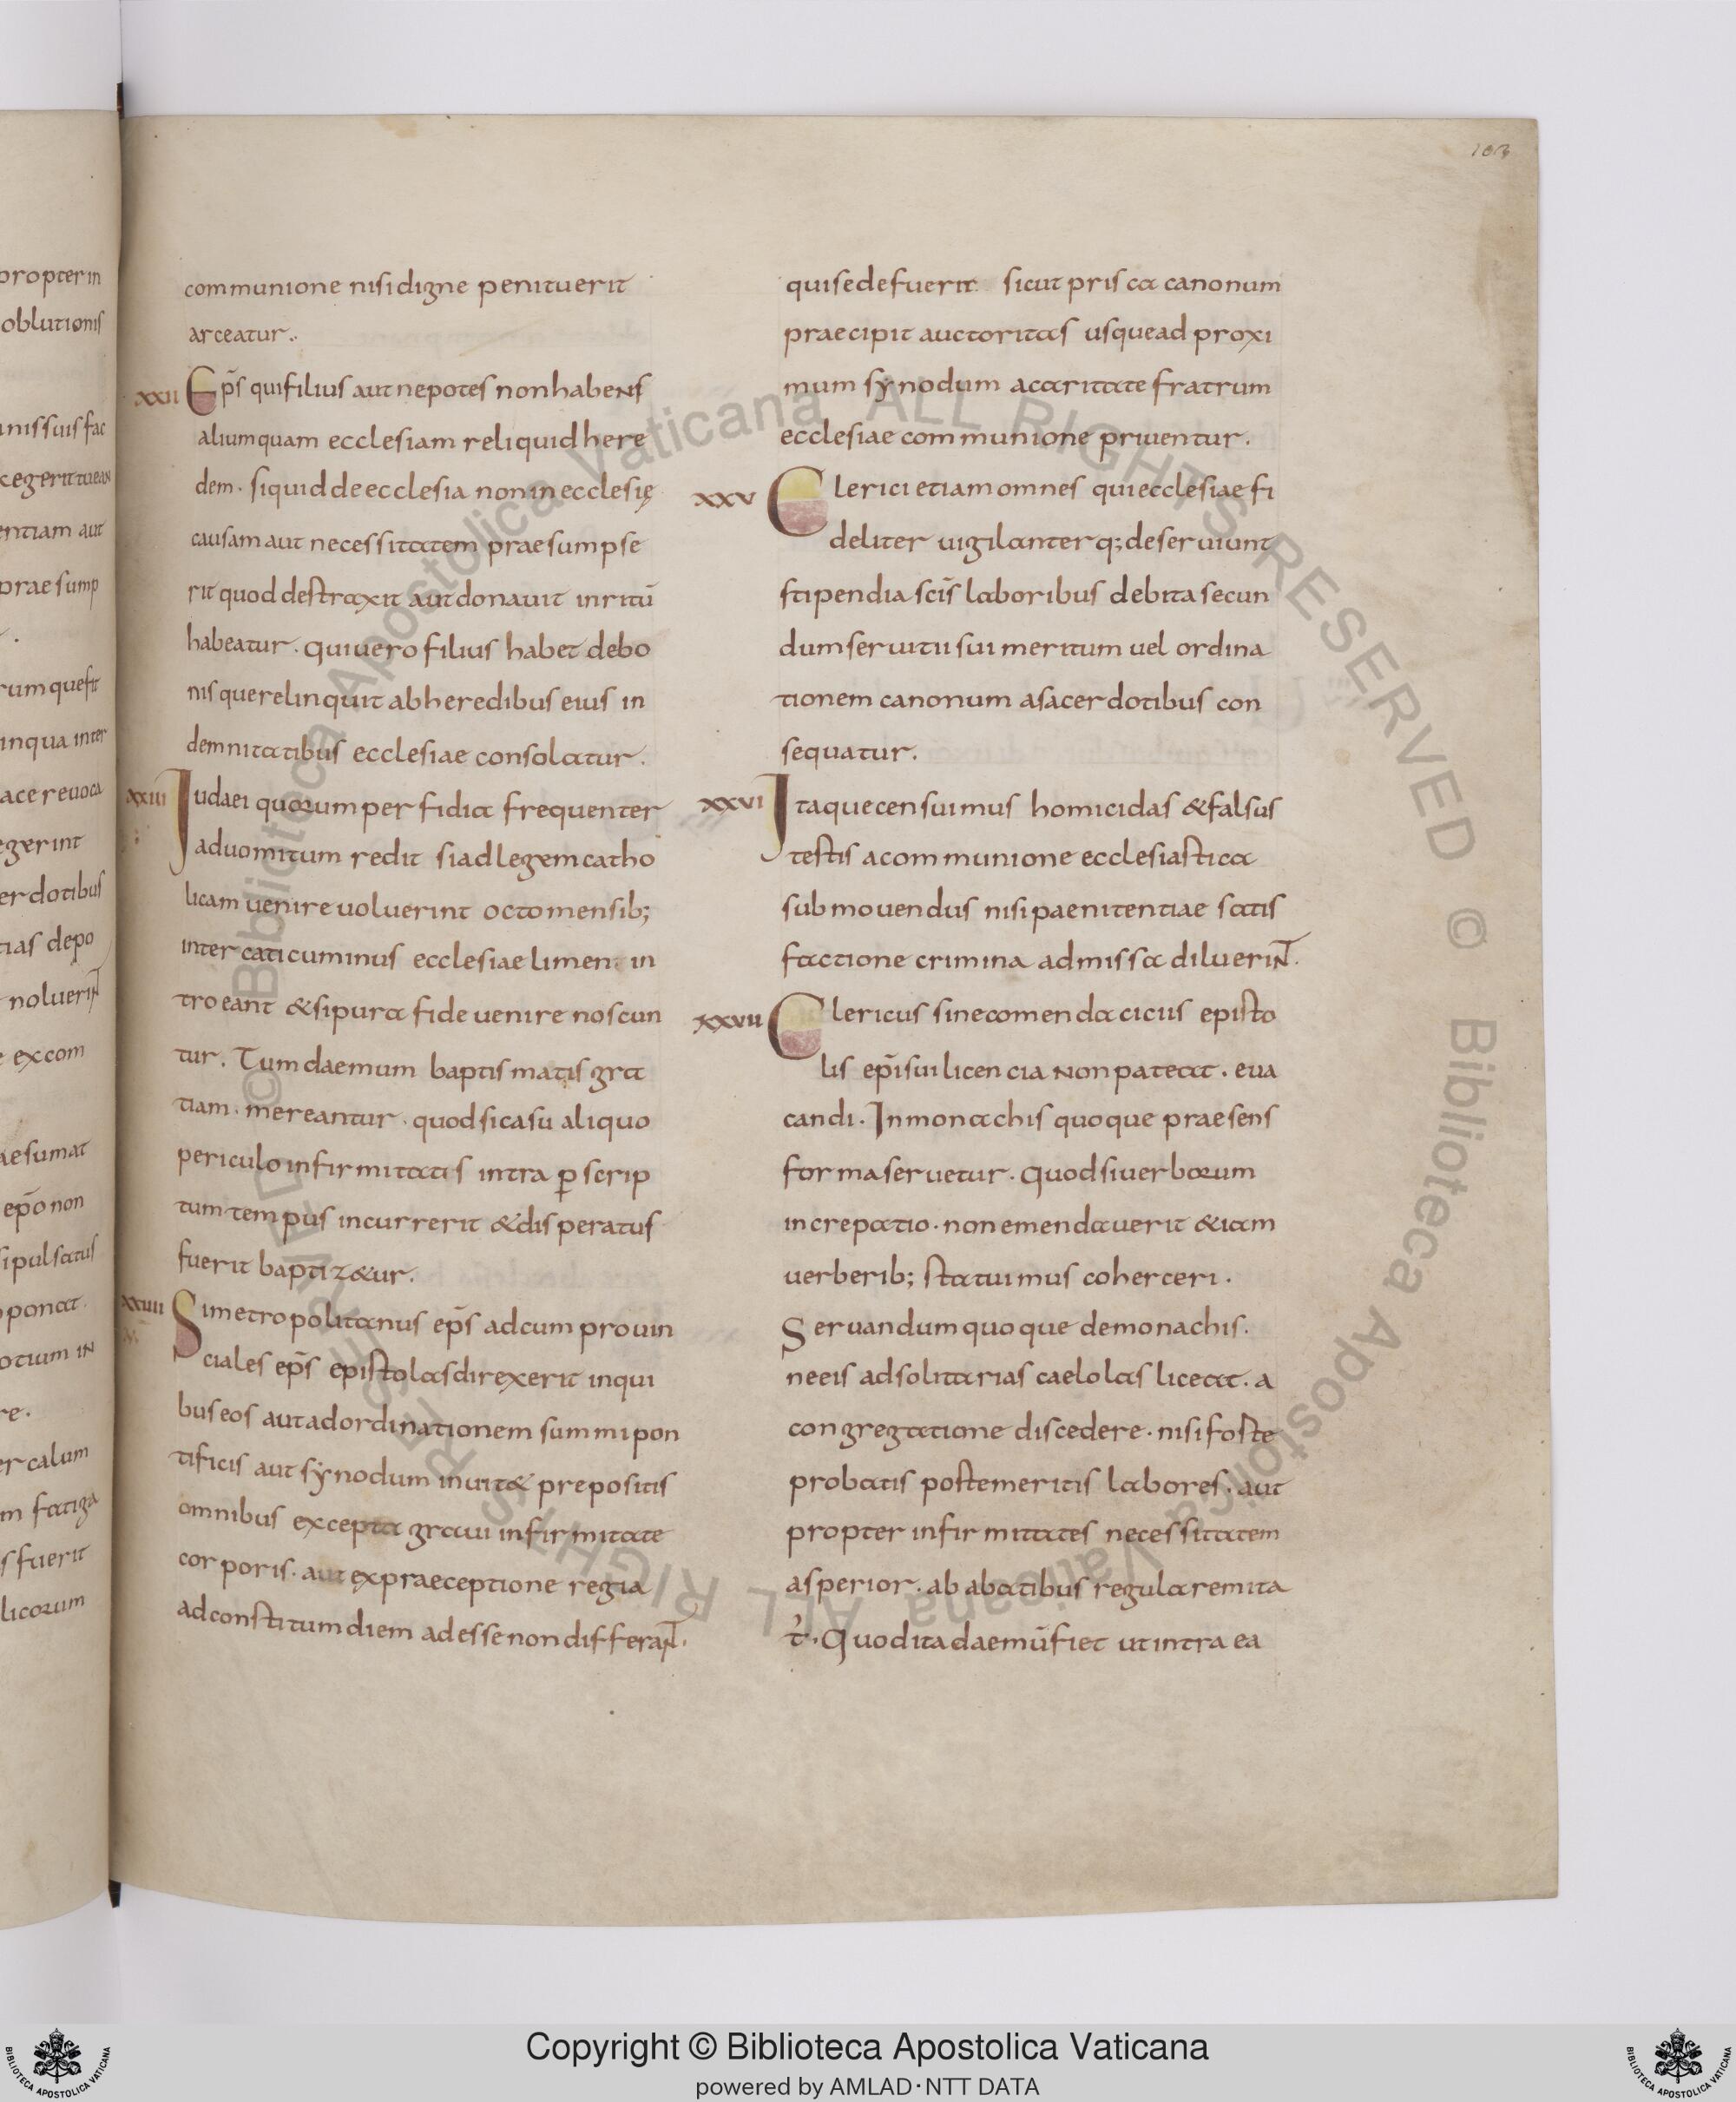 103
propter in
oblutionis
nis suis fac
cegerit tuean
entiam aut
praesump
rum que fit
inqua inter
ace revoca
egerint
erdotibus
tias depo
noluerint
excom
aesumat
ep̄o non
si pulsatus
ponat.
otium in
re.
er calum
m fatiga
s fuerit
licorum
communione nisi digne penituerit
arceatur.
XXII Ep̄s qui filius aut nepotes non habens
alium quam ecclesiam reliquid here
dem. siquid de ecclesia non in ecclesię
causam aut necessitatem praesumpse
rit quod destraxit aut donauit inritū
habeatur. qui uero filius habet debo
nis que relinquit ab heredibus eius in
demnitatibus ecclesiae consolatur.
XXIII Iudaei quorum perfidia frequenter
ad uomitum redit si ad legem catho
licam uenire uoluerint octo mensib;
inter caticuminus ecclesiae limen in
troeant & si pura fide uenire noscun
tur. Tum daemum baptismatis gra
tiam. mereantur. quod si casu aliquo
periculo infirmitatis intra p̱scrip
tum tempus incurrerit & disperatus
fuerit baptiz&ur.
XXIIII Si metropolitanus ep̄s ad cumprouin
ciales ep̄s epistolas direxerit in qui
bus eos aut ad ordinationem summi pon
tificis aut synodum inuit& prepositis
omnibus excepta graui infirmitate
corporis. aut ex praeceptione regia
ad constitum diem ad esse non differant.
qui se defuerit sicut prisca canonum
praecipit auctoritas usque ad proxi
mum synodum a caritate fratrum
ecclesiae communione priuentur.
XXV Clerici etiam omnes qui ecclesiae fi
deliter uigilanterq; deseruiunt
stipendia sc̄is laboribus debita secun
dum seruitii sui meritum uel ordina
tionem canonum a sacerdotibus con
sequatur.
XXVI Itaque censuimus homicidas & falsus
testis a communione ecclesiastica
submouendus nisi paenitentiae satis
factione crimina admissa diluerint.
XXVII Clericus sine comendaciciis episto
lis ep̄i sui licencia non pateat. eua
candi. In monachis quoque praesens
forma seruetur. Quod si uerborum
increpatio. non emendauerit & iam
uerberib; statuimus coherceri.
Seruandum quoque de monachis.
ne eis ad solitarias caelolas liceat. a
congregatione discedere. nisi foste
probatis poste meritis labores. aut
propter infirmitates necessitatem
asperior. ab abatibus regula remita
t̉. Quod ita daemū fiet ut intra ea
© Biblioteca Apostolica Vaticana ALL RIGHTS RESERVED © Biblioteca Apostolica Vaticana ALL RIGHTS RESERVED
Copyright © Biblioteca Apostolica Vaticana
powered by AMLAD·NTT DATA
BIBLIOTECA APOSTOLICA VATICANA
BIBLIOTECA APOSTOLICA VATICANA